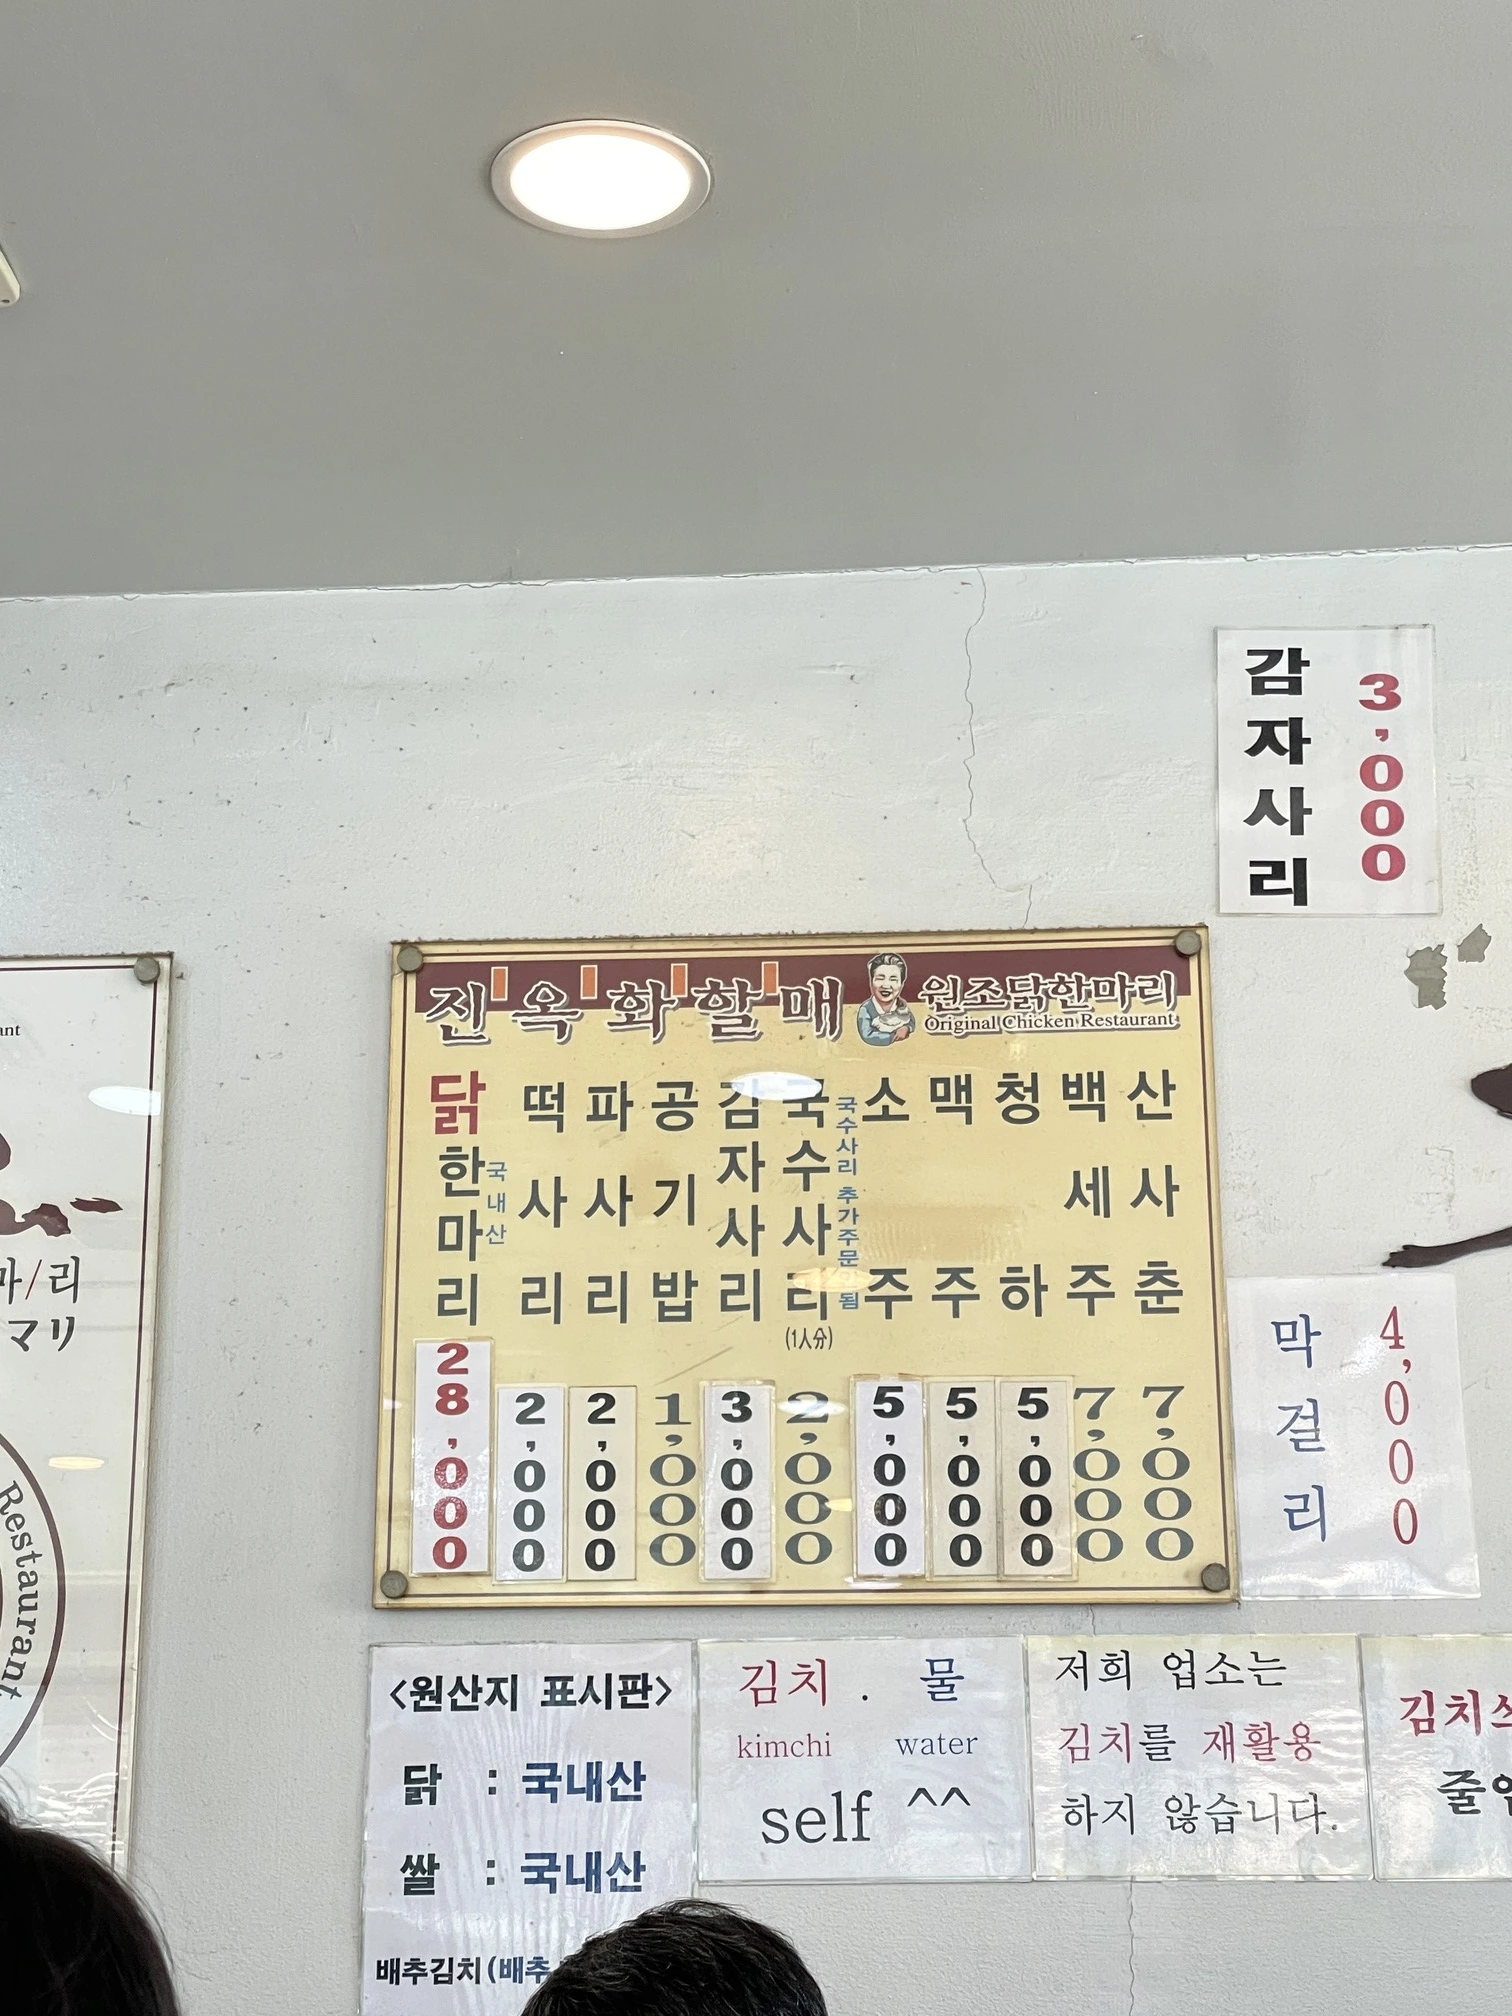 감자사리 3,000
진옥화할매 원조닭한마리
Original Chicken Restaurant
닭한마리 국내산 28,000
떡사리 2,000
파사리 2,000
공기밥 1,000
감자사리 3,000
국수사리 (1人分) 2,000
국수사리 추가주문
소주 5,000
맥주 5,000
청하 5,000
백세주 7,000
산사춘 7,000
막걸리 4,000
마/리
マリ
Restaurant
<원산지 표시판>
닭 : 국내산
쌀 : 국내산
배추김치(배추
김치 . 물
kimchi water
self ^^
저희 업소는
김치를 재활용
하지 않습니다.
김치